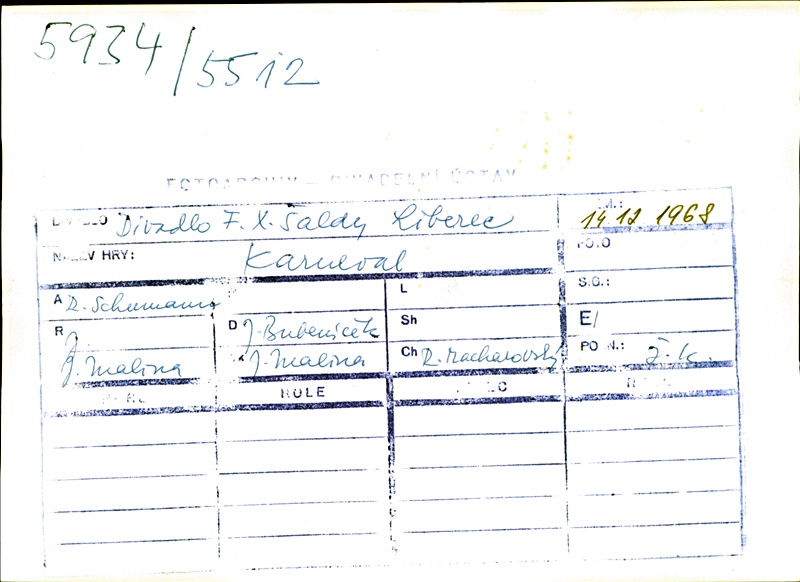 5934/5512
FOTOARCHIV – DIVADELNÍ ÚSTAV
DIVADLO Divadlo F. X. Šaldy Liberec 14.12.1968
NÁZEV HRY: Karneval FOTO
A R. Schumann L S.G.:
R D J. Bubeníček Sh E/
J. Malina J. Malina Ch R. Macharovský POZN.: ž. k.
ROLE